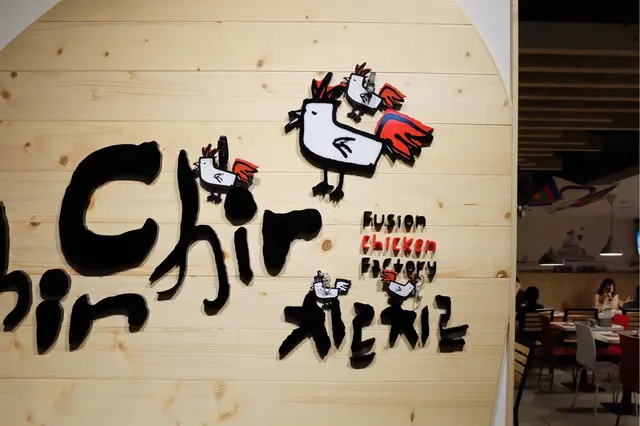 Chir
hir
Fusion
chicken
Factory
치르치르